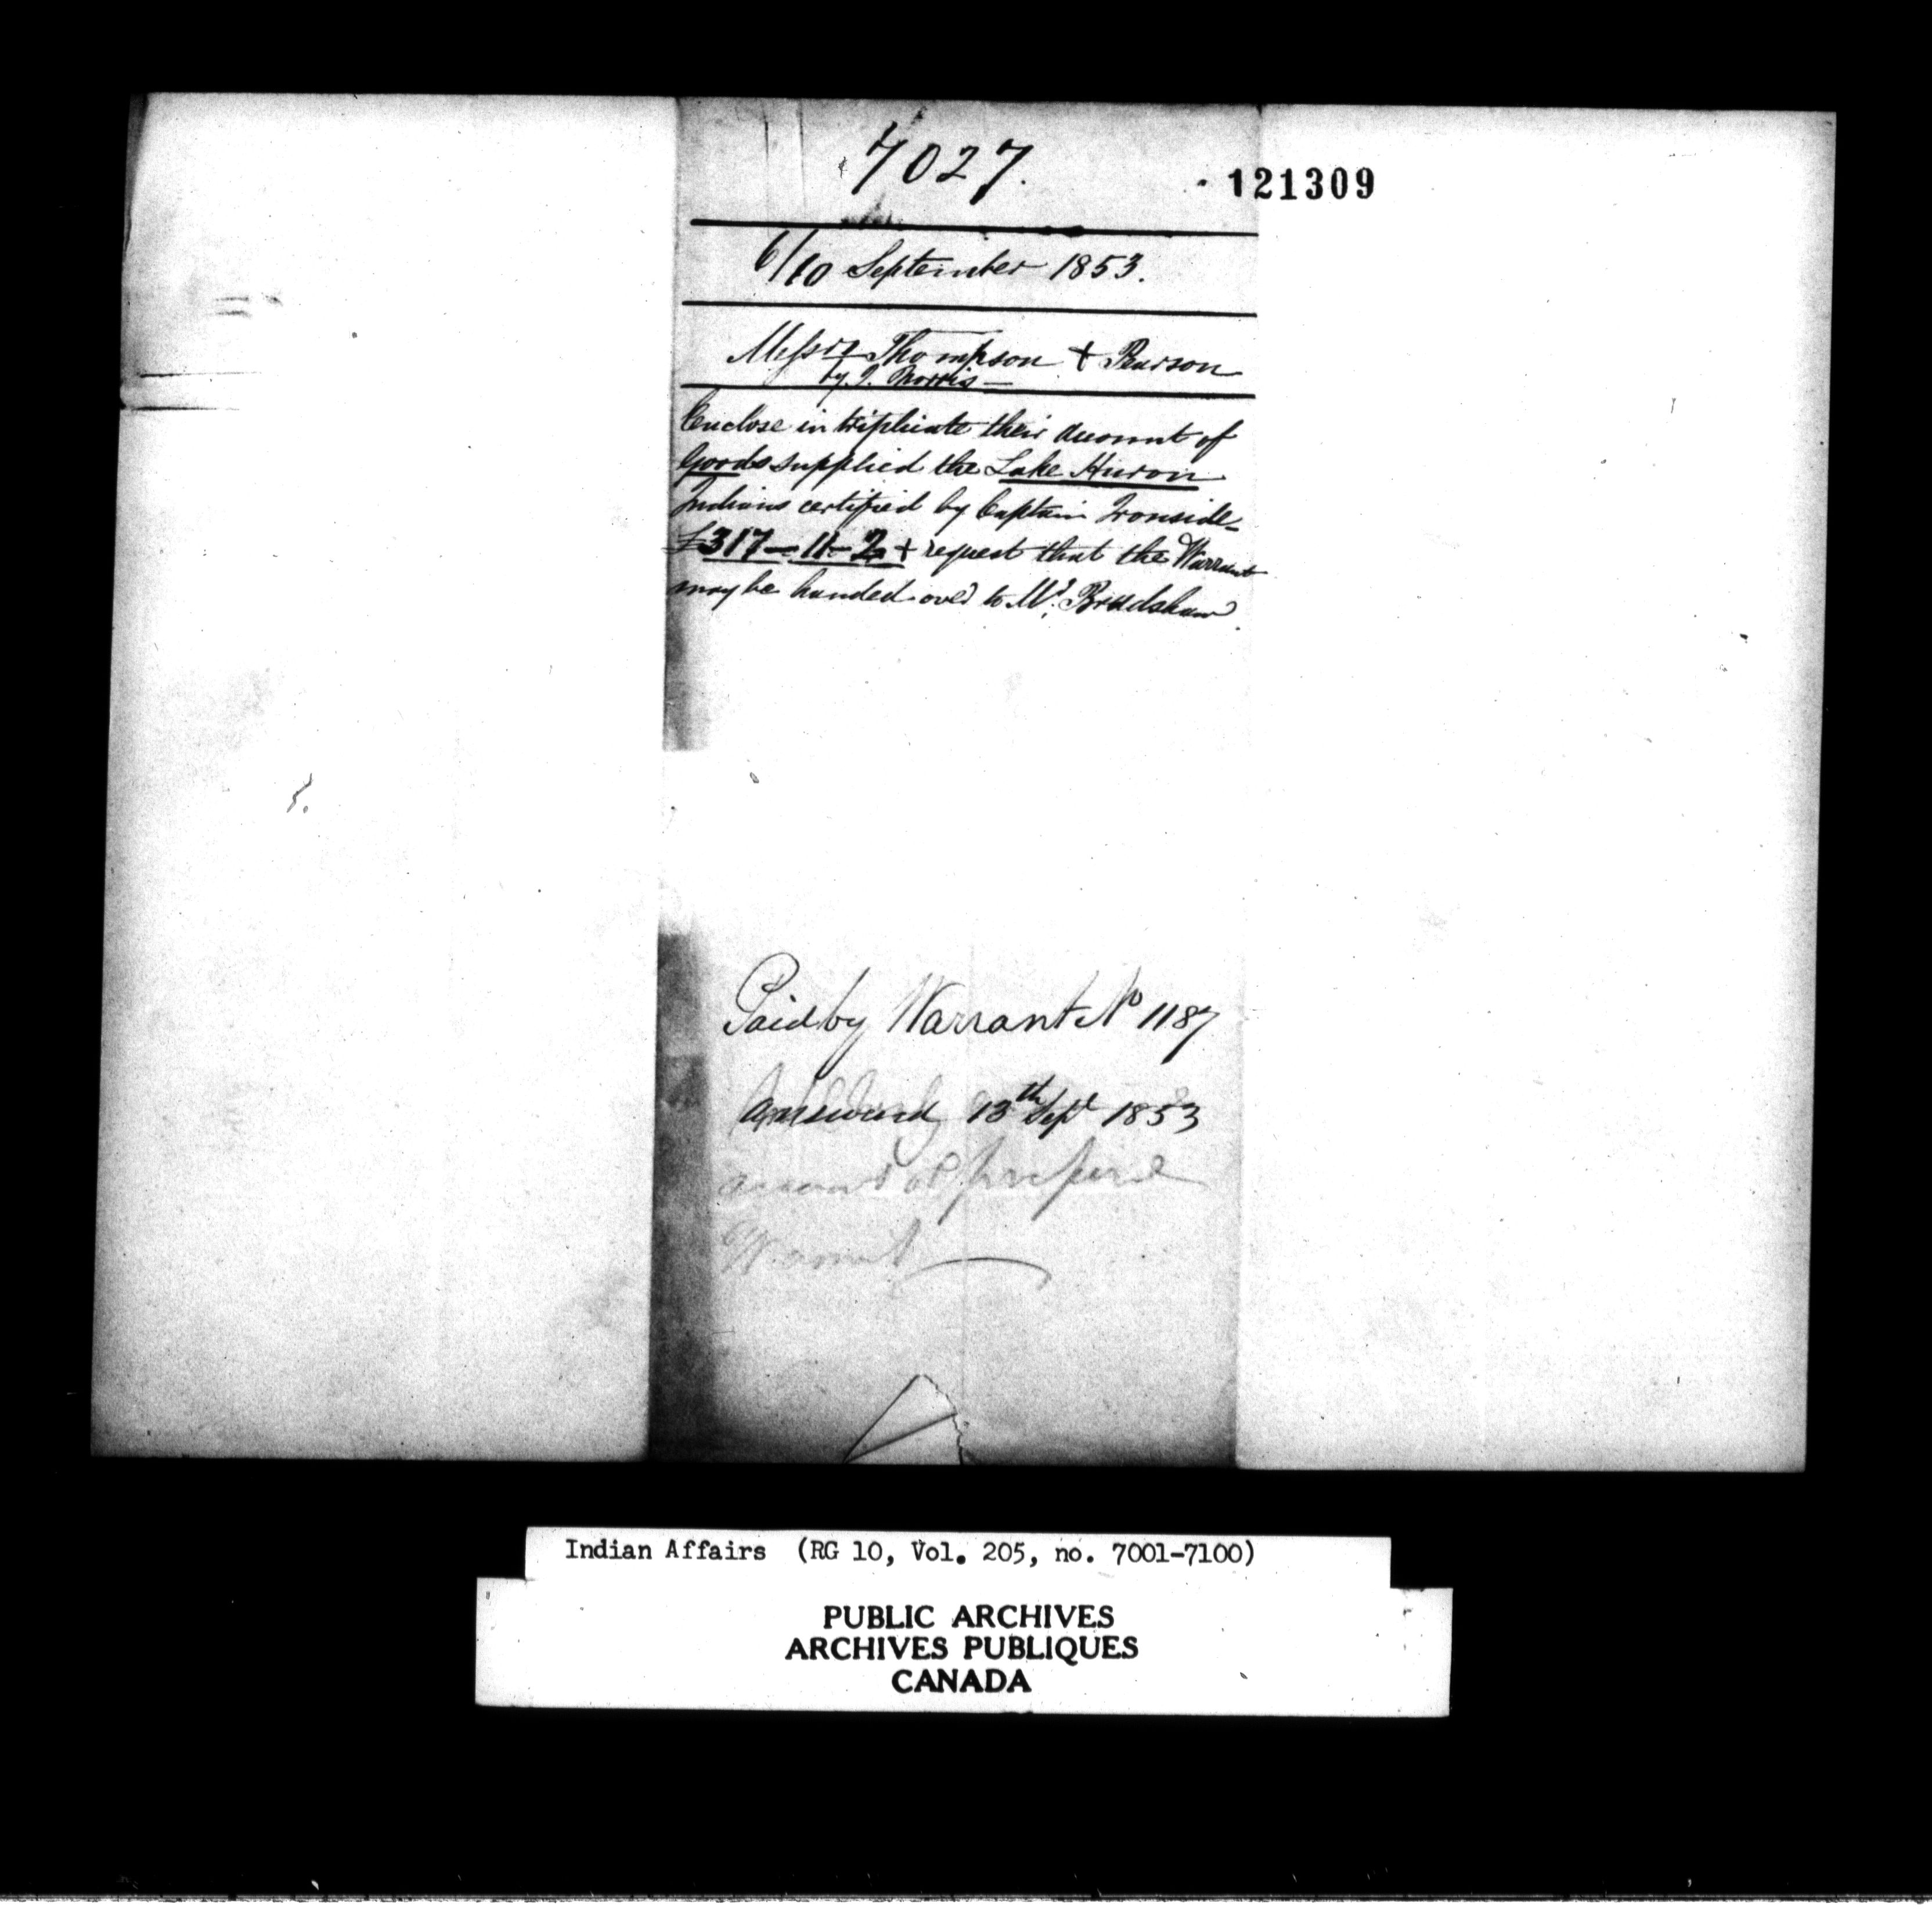 7027.
121309
6/10 September 1853.
Messrs Thompson + Pearson
by J. Morris —
Enclose in triplicate their account of
Goods supplied the Lake Huron
Indians certified by Captain Ironside
£317-11-2 + request that the Warrant
may be handed over to Mr. Bradshaw.
Paid by Warrant No 1187
Answered 13th Sept 1853
prepare
Warrant
Indian Affairs (RG 10, Vol. 205, no. 7001-7100)
PUBLIC ARCHIVES
ARCHIVES PUBLIQUES
CANADA